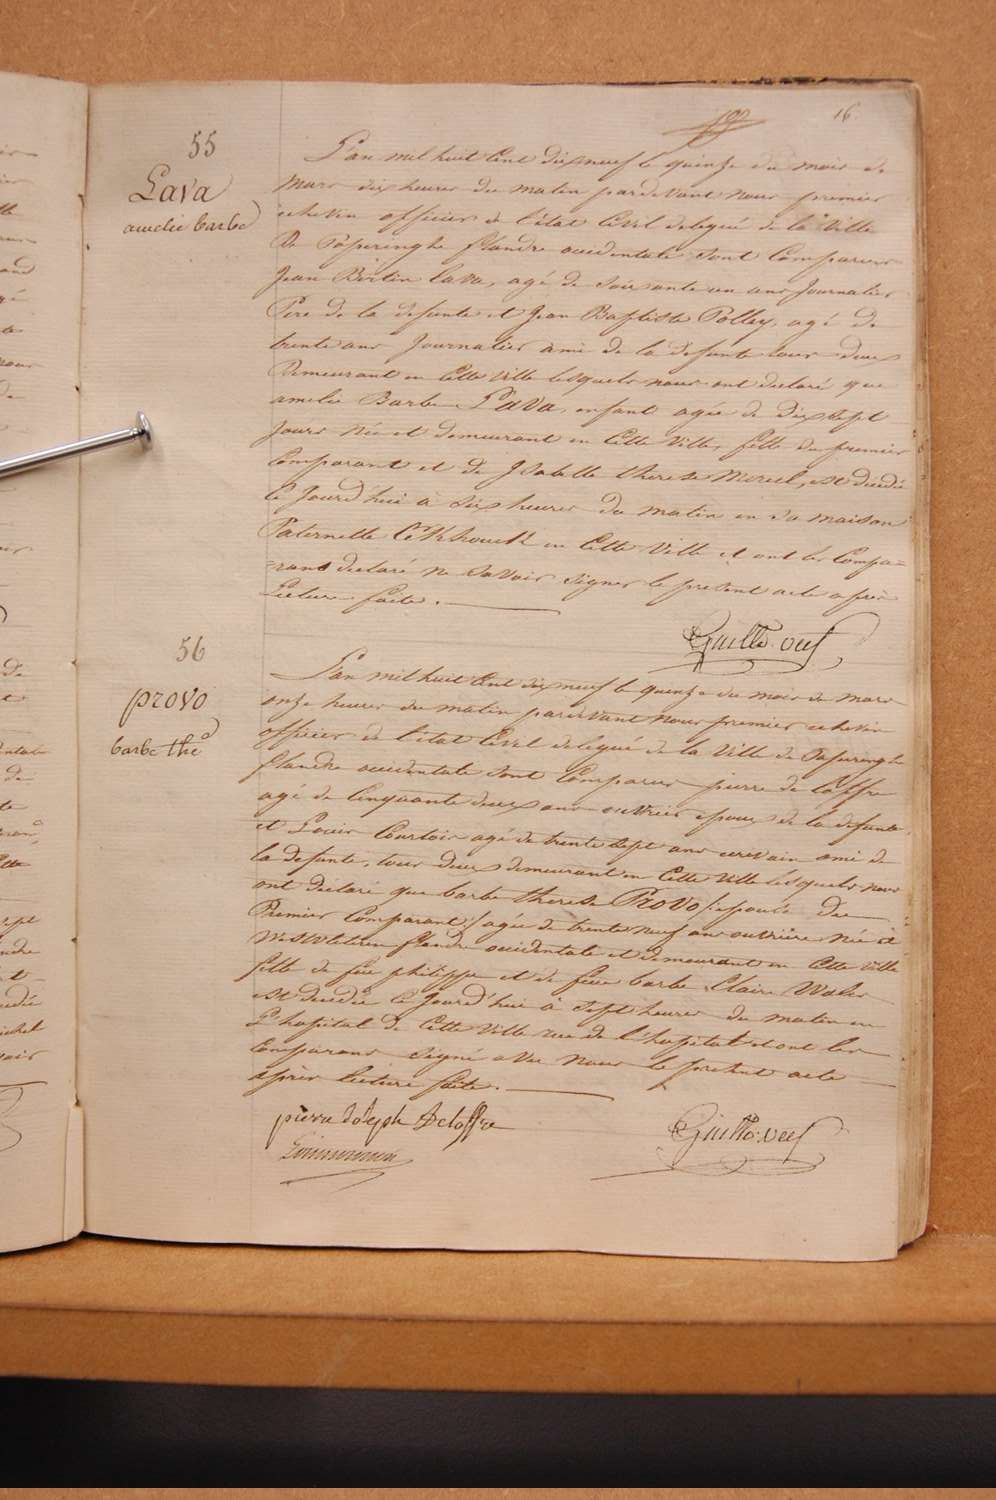 16
55
Lava
amelie barbe
L'an mil huit Cent dix neuf le quinze du mois de
mars dix heures du matin pardevant nous premier
echevin officier de l'état Civil delegué de la Ville
De Poperinghe flandre occidentale sont Comparus
Jean Bertin Lava, agé de soixante un ans Journalier
Pere de la defunte et Jean Baptiste Polley, agé de
trente ans Journalier ami de la defunte tous deux
Demeurant en Cette Ville lesquels nous ont declaré que
amelie Barbe LAVA, enfant agée de dix sept
Jours Née et demeurant en Cette Ville, fille du premier
Comparant et de Isabelle therese Mereel, est decedée
Ce Jourd'hui à six heures du matin en sa maison
Paternelle en Cette Ville et ont les Compa=
=rans declaré ne savoir signer le present acte après
Lecture faite.
56
PROVO
barbe the
L'an mil huit Cent dix neuf le quinze du mois de mars
onze heures du matin pardevant nous premier echevin
officier de l'état Civil delegué de la Ville de Poperinghe
flandre occidentale sont Comparus pierre deloffre
agé de Cinquante deux ans ouvrier epoux de la defunte
et Louis Courtois agé de trente sept ans ecrivain ami de
la defunte, tous deux demeurant en Cette Ville lesquels nous
ont déclaré que barbe therese PROVO /:epouse du
Premier Comparant:/ agée de trente neuf ans ouvrière née à
Westvleteren flandre occidentale et demeurant en Cette Ville
fille de feu philippe et de feue barbe Claire
est decedée Ce Jourd'hui à sept heures du matin en
L'hopital de Cette Ville rue de l'hopital et ont les
Comparans signé avec Nous le present acte
après lecture faite.
pierre Joseph Deloffre